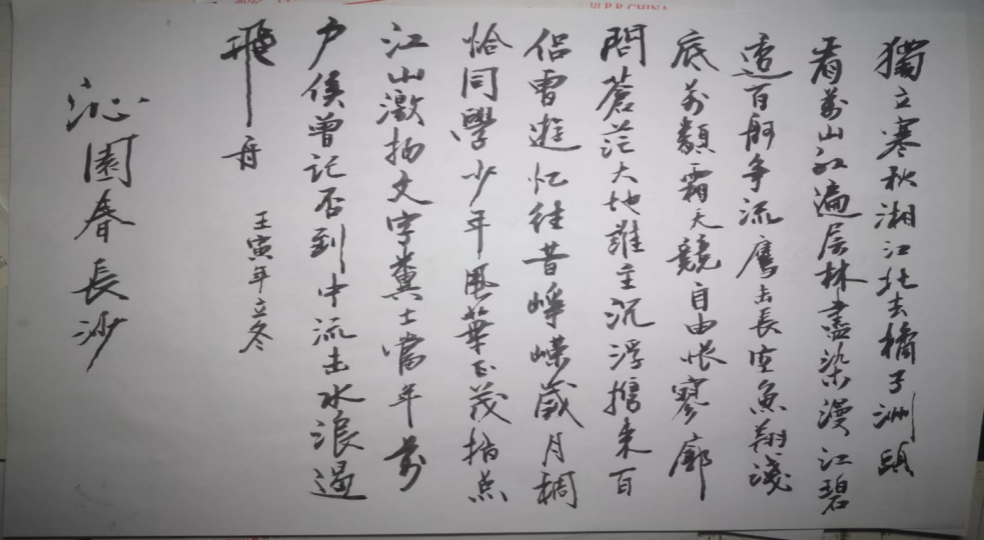 P.R.CHINA
獨立寒秋湘江北去橘子洲頭
看萬山红遍层林盡染漫江碧
透百舸争流鹰击長空魚翔淺
底萬類霜天競自由怅寥廓
問蒼茫大地誰主沉浮携来百
侣曾遊忆往昔峥嵘歲月稠
恰同學少年風華正茂指点
江山激扬文字糞土當年萬
户侯曾记否到中流击水浪遏
飛舟
壬寅年立冬
沁園春長沙